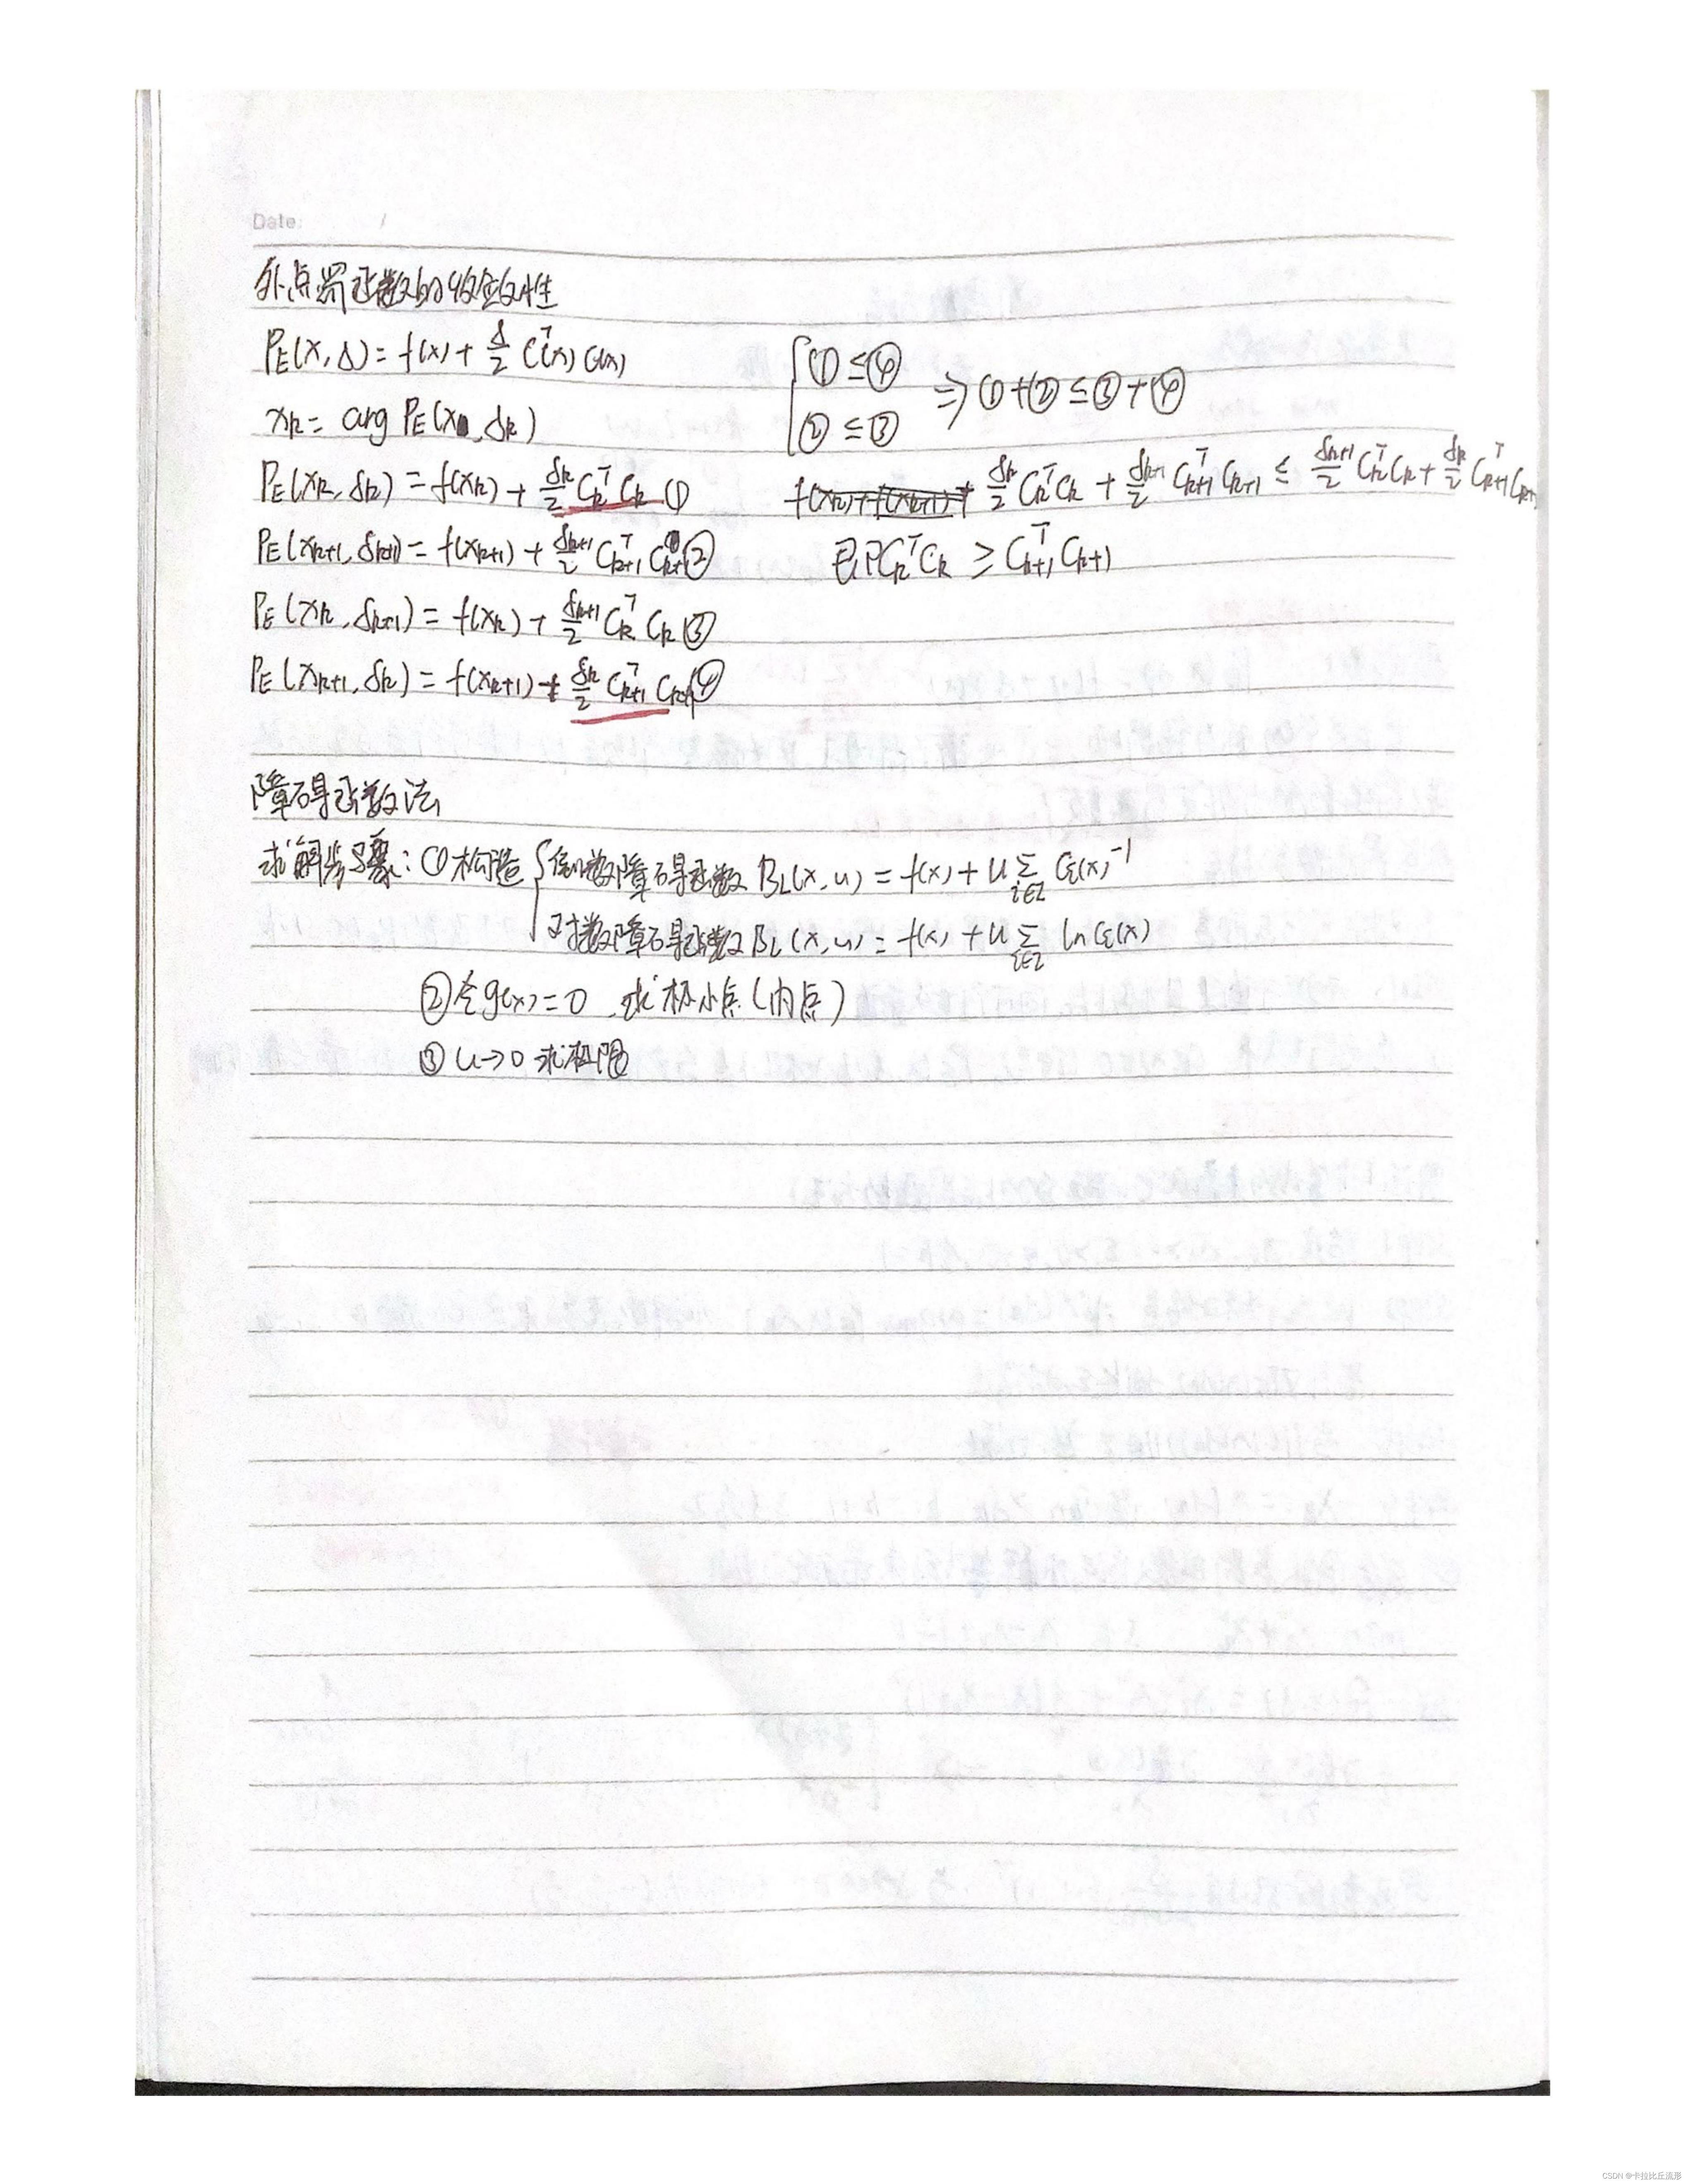 Date: /
外点罚函数的收敛性
P_E(x,δ)=f(x)+δ/2 C^T(x)C(x)
x_k = arg P_E(x,δ_k)
P_E(x_k,δ_k)=f(x_k)+δ_k/2 C_k^T C_k ①
P_E(x_{k+1},δ_{k+1})=f(x_{k+1})+δ_{k+1}/2 C_{k+1}^T C_{k+1} ②
P_E(x_k,δ_{k+1})=f(x_k)+δ_{k+1}/2 C_k^T C_k ③
P_E(x_{k+1},δ_k)=f(x_{k+1})+δ_k/2 C_{k+1}^T C_{k+1} ④
{①≤④
②≤③ ⇒ ①+②≤③+④
δ_k/2 C_k^T C_k + δ_{k+1}/2 C_{k+1}^T C_{k+1} ≤ δ_{k+1}/2 C_k^T C_k + δ_k/2 C_{k+1}^T C_{k+1}
即 C_k^T C_k ≥ C_{k+1}^T C_{k+1}
障碍函数法
求解步骤:①构造{倒数障碍函数 B_L(x,u)=f(x)+u∑_{i∈I} C_i(x)^{-1}
对数障碍函数 B_L(x,u)=f(x)+u∑_{i∈I} ln C_i(x)
②令g(x)=0,求极小点(内点)
③u→0 求极限
CSDN @卡拉比丘流形